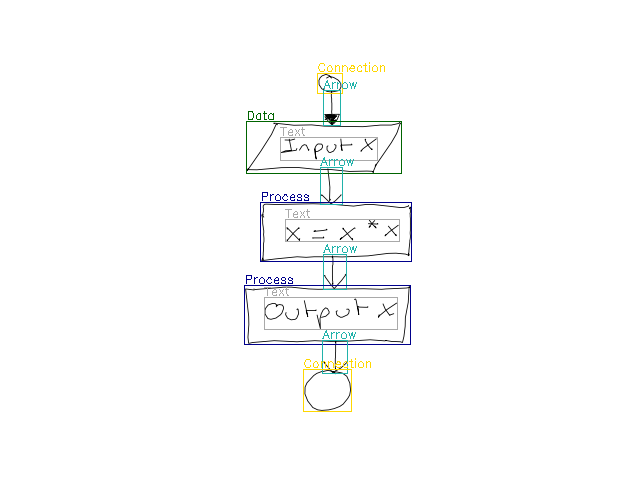 Connection
Arrow
Data
Text
Input X
Arrow
Process
Text
x = x * x
Arrow
Process
Text
Output X
Arrow
Connection